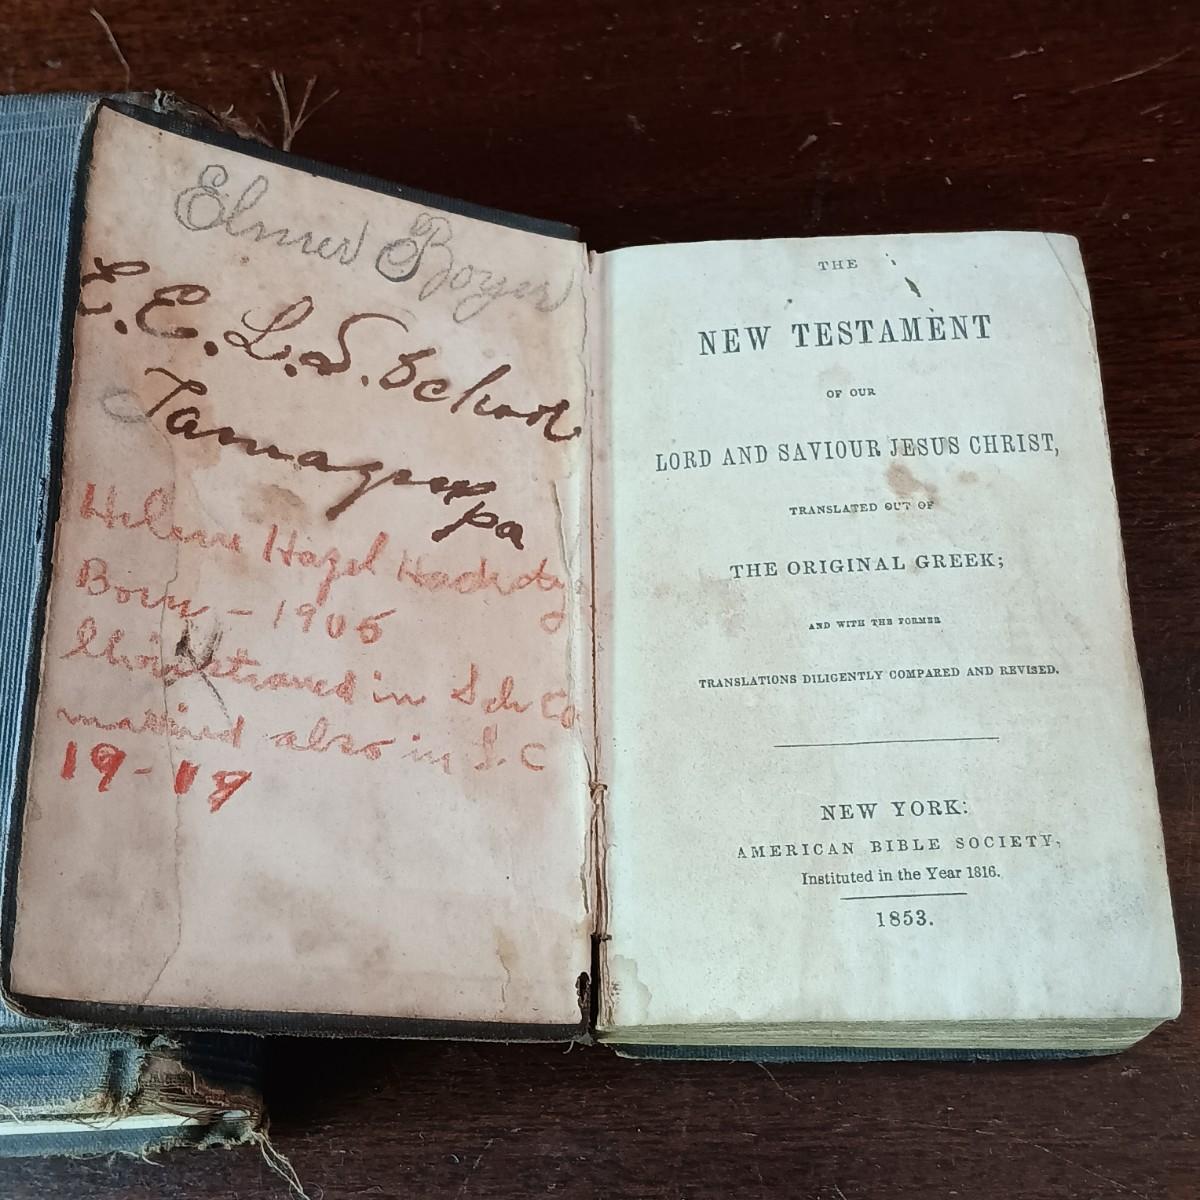 Elmer Boyer
E. E. L. S. School
Tamaqua pa
Helene Hazel
Born - 1905
in Sch Co
married also in S. C
19-18
THE
NEW TESTAMENT
OF OUR
LORD AND SAVIOUR JESUS CHRIST,
TRANSLATED OUT OF
THE ORIGINAL GREEK;
AND WITH THE FORMER
TRANSLATIONS DILIGENTLY COMPARED AND REVISED.
NEW YORK:
AMERICAN BIBLE SOCIETY,
Instituted in the Year 1816.
1853.